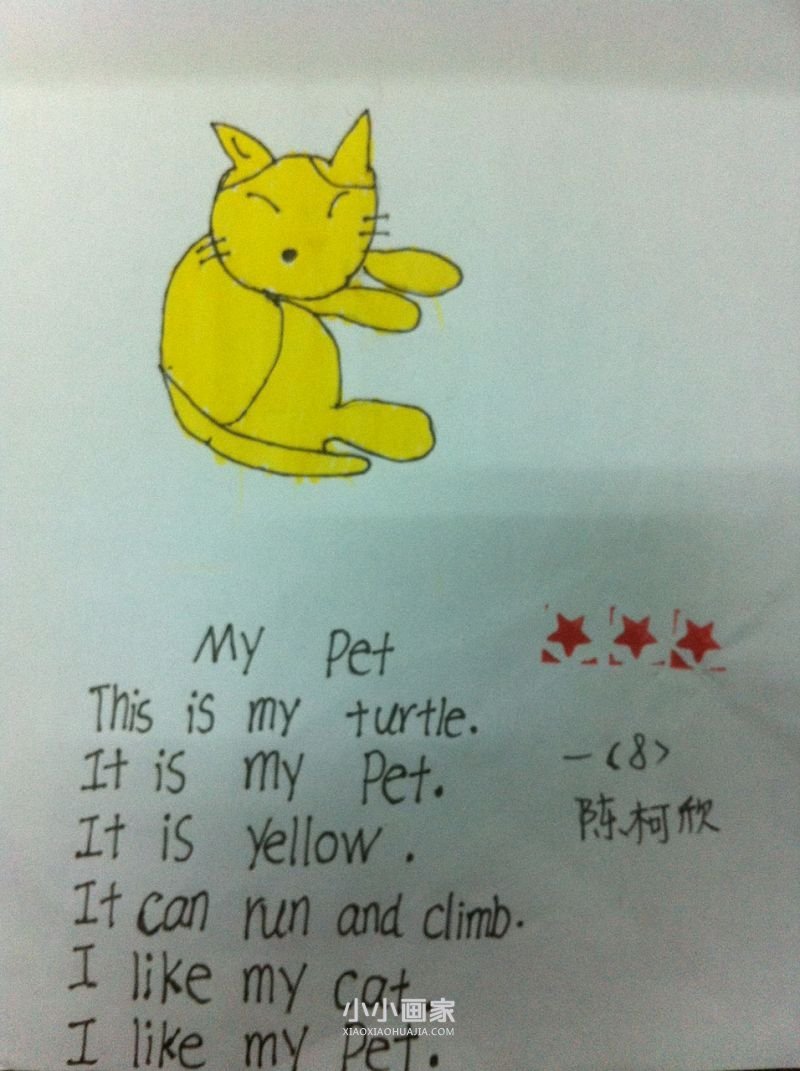 My Pet
This is my turtle.
It is my Pet.
It is yellow.
It can run and climb.
I like my cat.
I like my Pet.
一(8)
陈柯欣
小小画家
XIAOXIAOHUAJIA.COM